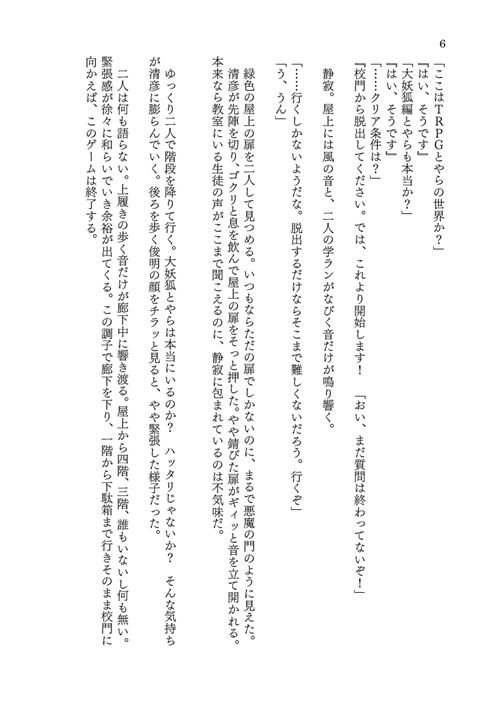 6
「ここはTRPGとやらの世界か?」
『はい、そうです』
「大妖狐編とやらも本当か?」
『はい、そうです』
「……クリア条件は?」
『校門から脱出してください。では、これより開始します! 「おい、まだ質問は終わってないぞ!」
静寂。屋上には風の音と、二人の学ランがなびく音だけが鳴り響く。
「……行くしかないようだな。脱出するだけならそこまで難しくないだろう。行くぞ」
「う、うん」
緑色の屋上の扉を二人して見つめる。いつもならただの扉でしかないのに、まるで悪魔の門のように見えた。
清彦が先陣を切り、ゴクリと息を飲んで屋上の扉をそっと押した。やや錆びた扉がギィッと音を立て開かれる。
本来なら教室にいる生徒の声がここまで聞こえるのに、静寂に包まれているのは不気味だ。
ゆっくり二人で階段を降りて行く。大妖狐とやらは本当にいるのか? ハッタリじゃないか? そんな気持ち
が清彦に膨らんでいく。後ろを歩く俊明の顔をチラッと見ると、やや緊張した様子だった。
二人は何も語らない。上履きの歩く音だけが廊下中に響き渡る。屋上から四階、三階、誰もいないし何も無い。
緊張感が徐々に和らいでいき余裕が出てくる。この調子で廊下を下り、一階から下駄箱まで行きそのまま校門に
向かえば、このゲームは終了する。